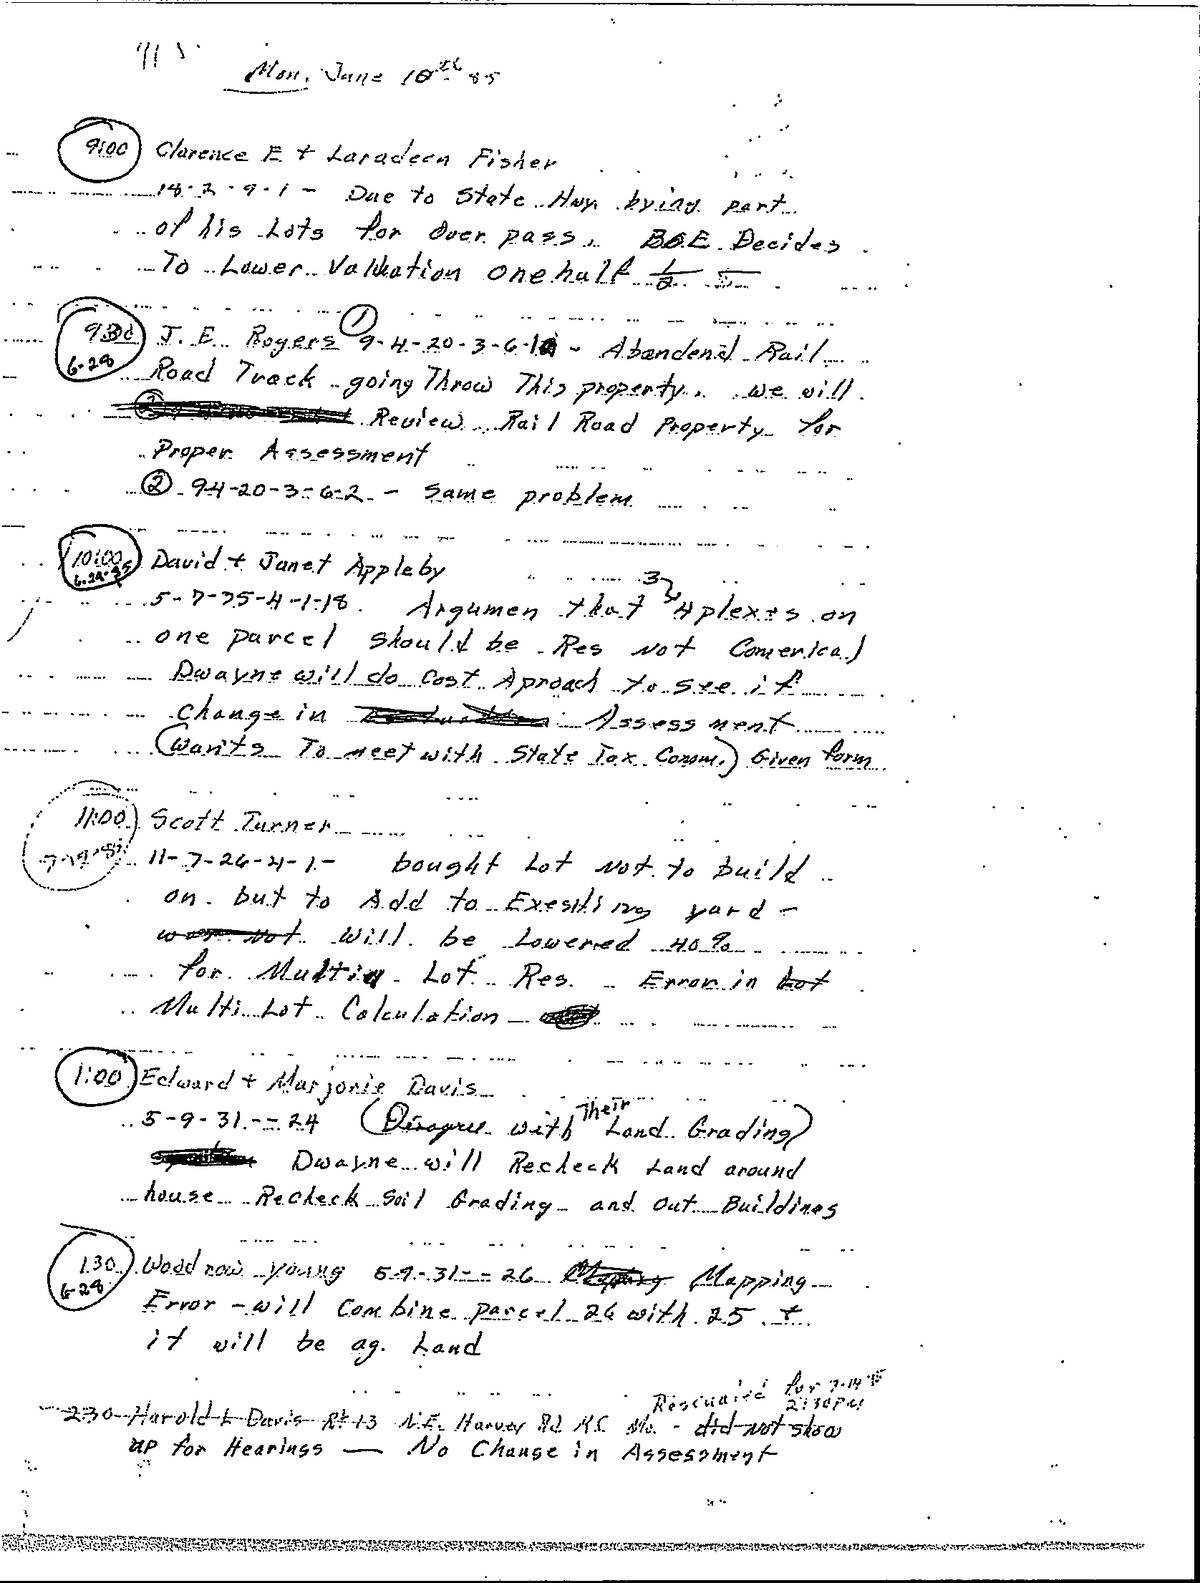 Mon. June 10th 85
9:00 Clarence E + Laradeen Fisher
18-2-9-1- Due to State Hwy bying part
of his Lots for Over pass. BOE Decides
To Lower Valuation one half 1/2
930 J. E. Rogers ① 9-4-20-3-6-1 - Abandend Rail
6-28 Road Track going Throw This property. we will
② Review Rail Road Property for
Proper Assessment
② 94-20-3-6-2 - same problem
10:00 David + Janet Appleby
6-28-85
5-7-25-4-1-18. Argumen that 3 4plexes on
one parcel should be Res Not Comerical
Dwayne will do Cost Aproach to see if
change in Assessment
(Wants To meet with State Tax Comm.) Given form
11:00 Scott Turner
11-7-26-4-1- bought Lot Not to build
on but to Add to Exesiting yard -
was not will be Lowered 40%
for Multi Lot Res. Error in Lot
Multi Lot Calculation -
1:00 Edward + Marjorie Davis
5-9-31--24 (Disagree with Their Land Grading)
Dwayne will Recheck Land around
house Recheck Soil Grading and Out Buildines
130 Woodrow young 5-9-31--26 Mapping Mapping
6-28 Error - will Combine parcel 26 with 25 +
it will be ag. Land
for 7-14
2:30PM
230 Harold L Davis Rt 13 N.E. Harvey Rd K.C. Mo. - did not show
up for Hearings — No Change in Assessment